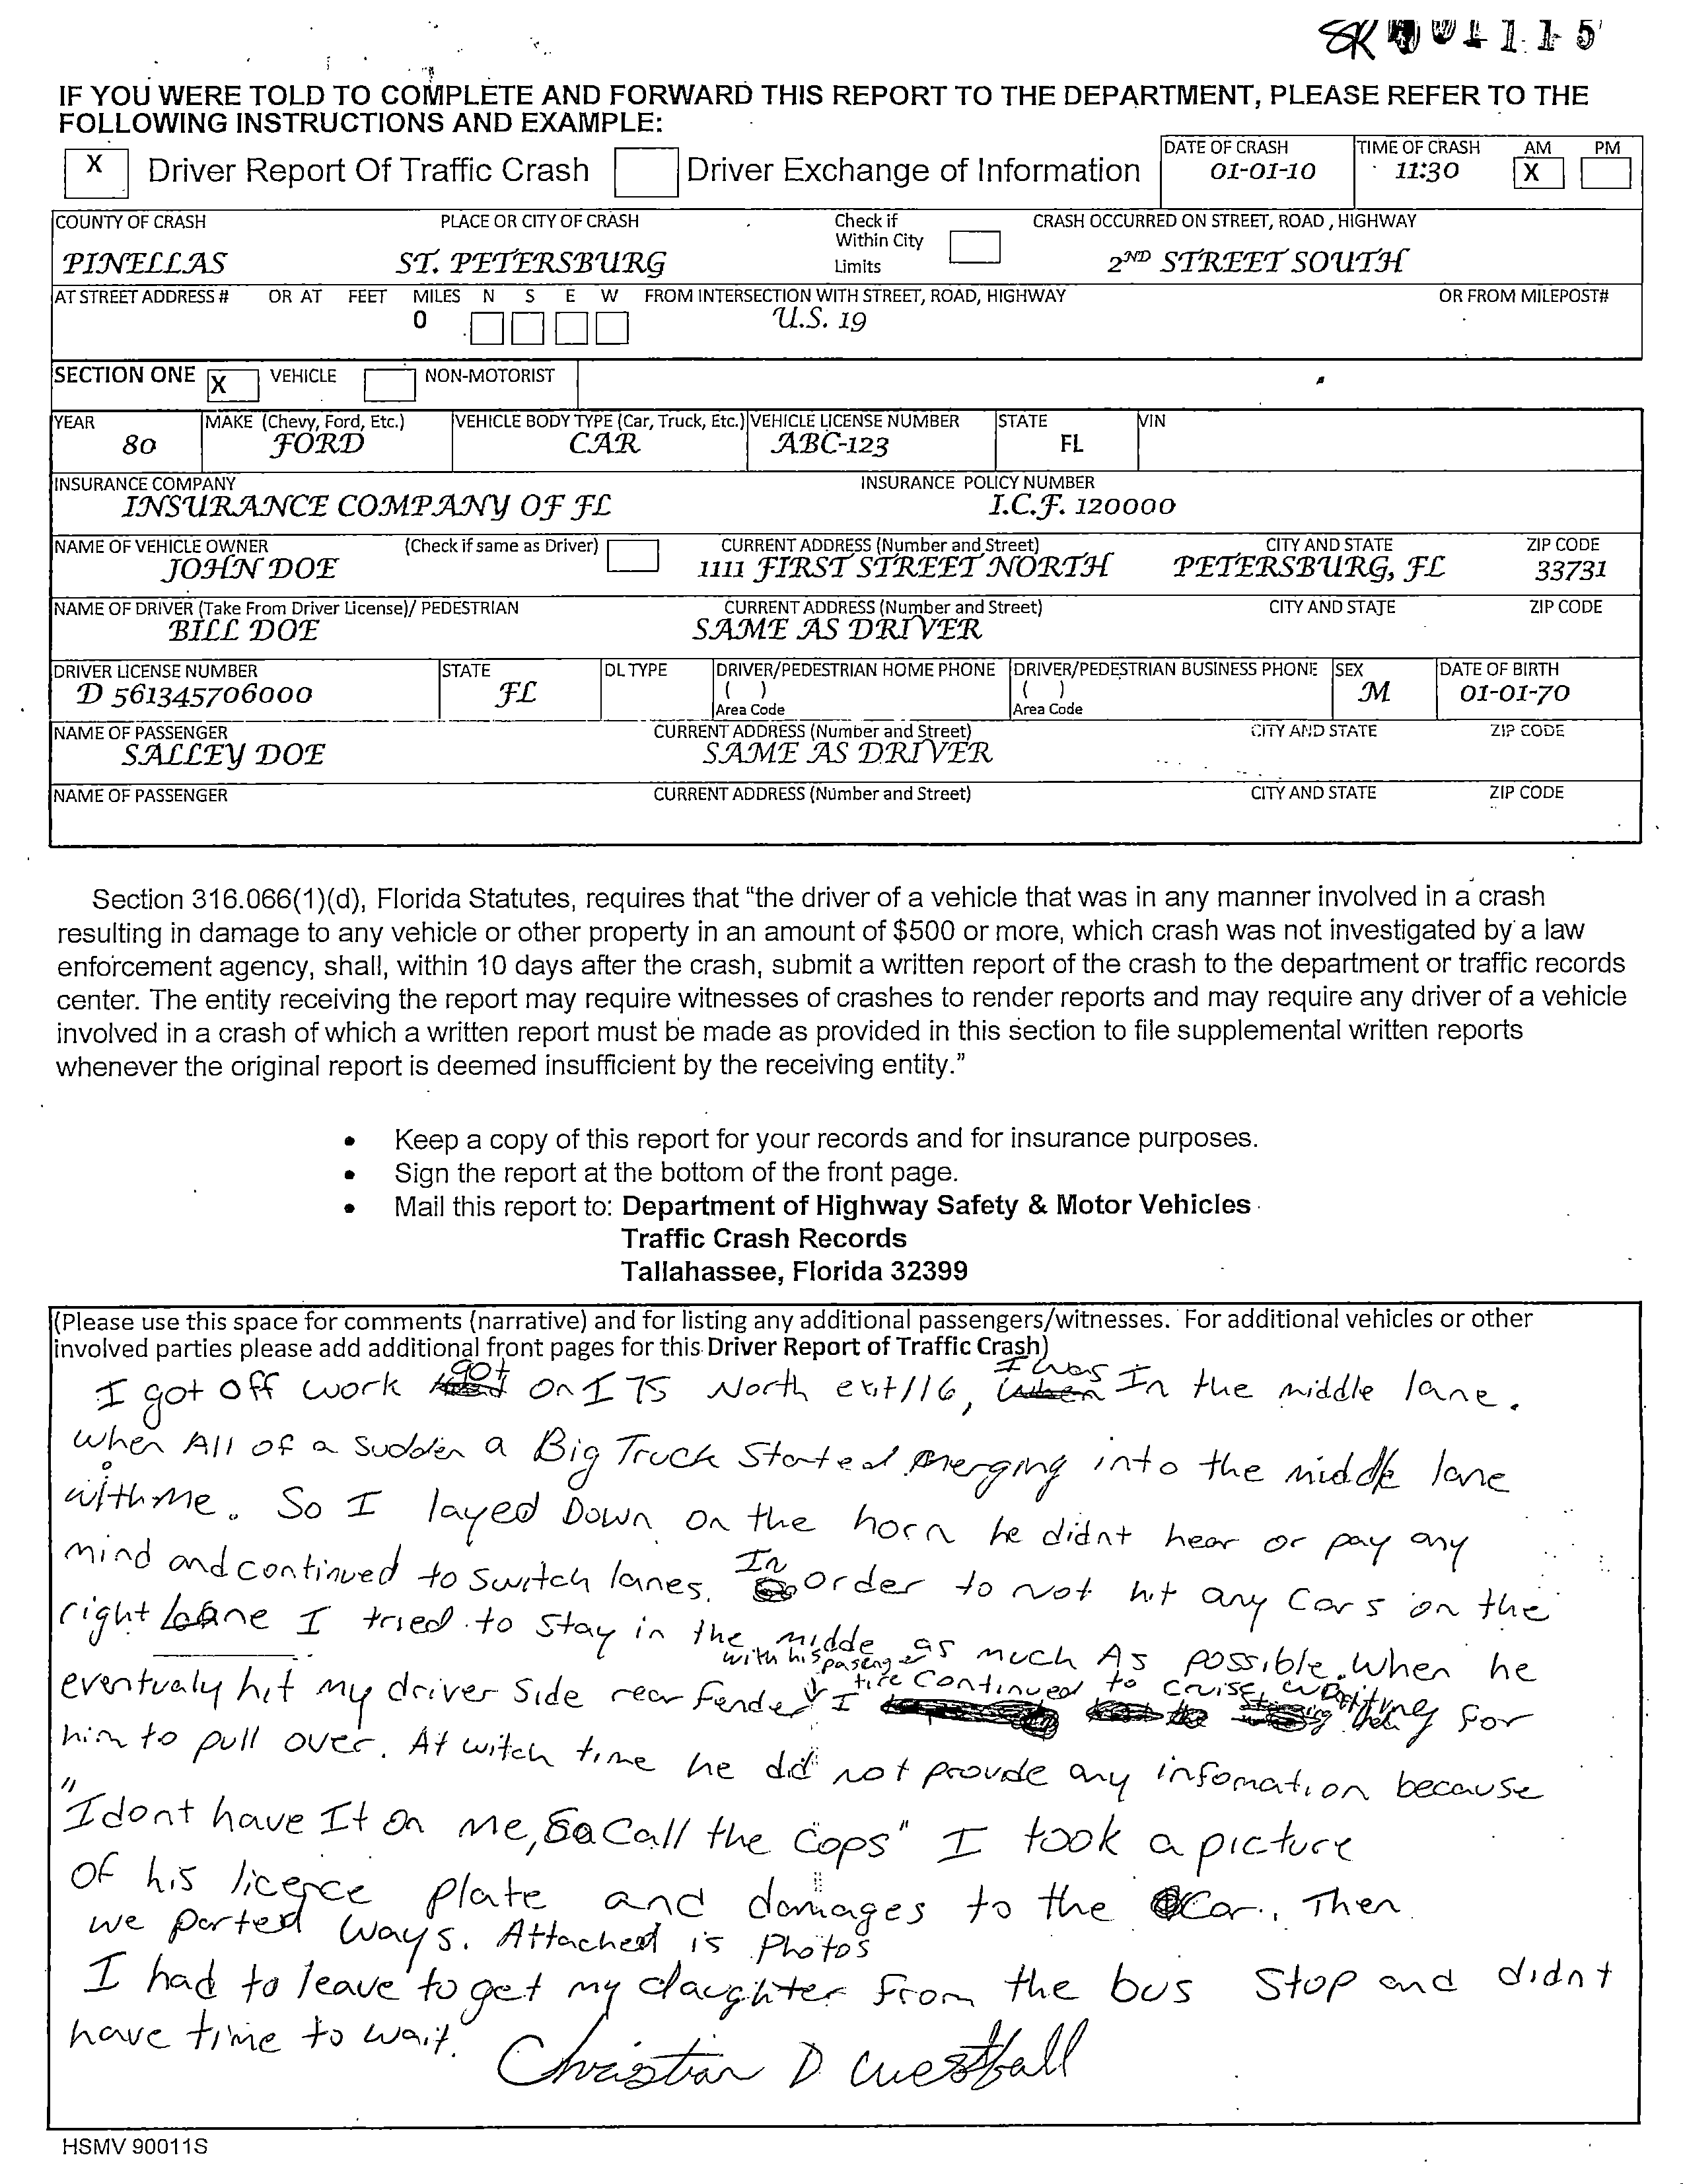 115
IF YOU WERE TOLD TO COMPLETE AND FORWARD THIS REPORT TO THE DEPARTMENT, PLEASE REFER TO THE
FOLLOWING INSTRUCTIONS AND EXAMPLE:
X Driver Report Of Traffic Crash Driver Exchange of Information DATE OF CRASH 01-01-10 TIME OF CRASH 11:30 AM X PM
COUNTY OF CRASH PLACE OR CITY OF CRASH Check if Within City Limits CRASH OCCURRED ON STREET, ROAD , HIGHWAY
PINELLAS ST. PETERSBURG 2ND STREET SOUTH
AT STREET ADDRESS # OR AT FEET MILES N S E W FROM INTERSECTION WITH STREET, ROAD, HIGHWAY OR FROM MILEPOST#
0 U.S. 19
SECTION ONE X VEHICLE NON-MOTORIST
YEAR MAKE (Chevy, Ford, Etc.) VEHICLE BODY TYPE (Car, Truck, Etc.) VEHICLE LICENSE NUMBER STATE VIN
80 FORD CAR ABC-123 FL
INSURANCE COMPANY INSURANCE POLICY NUMBER
INSURANCE COMPANY OF FL I.C.F. 120000
NAME OF VEHICLE OWNER (Check if same as Driver) CURRENT ADDRESS (Number and Street) CITY AND STATE ZIP CODE
JOHN DOE 1111 FIRST STREET NORTH PETERSBURG, FL 33731
NAME OF DRIVER (Take From Driver License)/ PEDESTRIAN CURRENT ADDRESS (Number and Street) CITY AND STATE ZIP CODE
BILL DOE SAME AS DRIVER
DRIVER LICENSE NUMBER STATE DL TYPE DRIVER/PEDESTRIAN HOME PHONE DRIVER/PEDESTRIAN BUSINESS PHONE SEX DATE OF BIRTH
D 561345706000 FL ( ) ( ) M 01-01-70
Area Code Area Code
NAME OF PASSENGER CURRENT ADDRESS (Number and Street) CITY AND STATE ZIP CODE
SALLEY DOE SAME AS DRIVER
NAME OF PASSENGER CURRENT ADDRESS (Number and Street) CITY AND STATE ZIP CODE
Section 316.066(1)(d), Florida Statutes, requires that “the driver of a vehicle that was in any manner involved in a crash
resulting in damage to any vehicle or other property in an amount of $500 or more, which crash was not investigated by a law
enforcement agency, shall, within 10 days after the crash, submit a written report of the crash to the department or traffic records
center. The entity receiving the report may require witnesses of crashes to render reports and may require any driver of a vehicle
involved in a crash of which a written report must be made as provided in this section to file supplemental written reports
whenever the original report is deemed insufficient by the receiving entity.”
• Keep a copy of this report for your records and for insurance purposes.
• Sign the report at the bottom of the front page.
• Mail this report to: Department of Highway Safety & Motor Vehicles
Traffic Crash Records
Tallahassee, Florida 32399
(Please use this space for comments (narrative) and for listing any additional passengers/witnesses. For additional vehicles or other
involved parties please add additional front pages for this Driver Report of Traffic Crash)
I got off work got on I 75 North exit 116, I was In the middle lane.
when All of a sudden a Big Truck Started merging into the middle lane
with me. So I layed Down on the horn he didnt hear or pay any
mind and continued to switch lanes. In order to not hit any Cars on the
right lane I tried to stay in the midde as much As possible. When he
eventualy hit my driver side rear fender with his pasenger tire I continued to cruise waiting for
him to pull over. At witch time he did not provide any infomation because
"I dont have It on me, So Call the Cops" I took a picture
of his licence plate and damages to the Car. Then
we parted ways. Attached is Photos
I had to leave to get my daughter from the bus stop and didnt
have time to wait. Christian D Westfall
HSMV 90011S